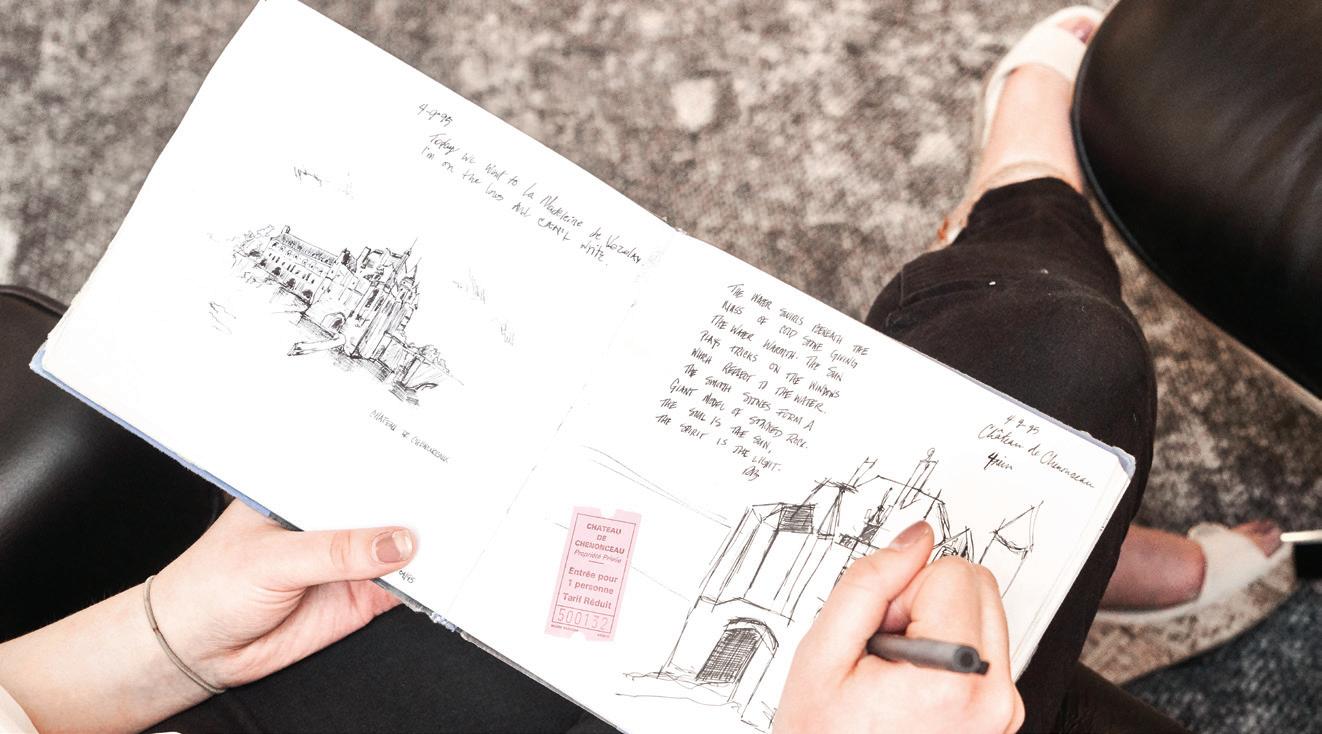 4-9-95
Today we went to La Madeleine de Vezelay
I'm on the bus and can't write.
CHATEAU DE CHENONCEAUX
04/95
THE WATER SWIRLS BENEATH THE
MASS OF COLD STONE GIVING
THE WATER WARMTH. THE SUN
PLAYS TRICKS ON THE WINDOWS
WHICH REFLECT IN THE WATER.
THE SMOOTH STONES FORM A
GIANT MODEL OF STAINED ROCK.
THE SOUL IS THE SUN,
THE SPIRIT IS THE LIGHT.
4-9-95
Château de Chenonceau
4pm
CHATEAU
DE
CHENONCEAU
Propriété Privée
Entrée pour
1 personne
Tarif Réduit
500132